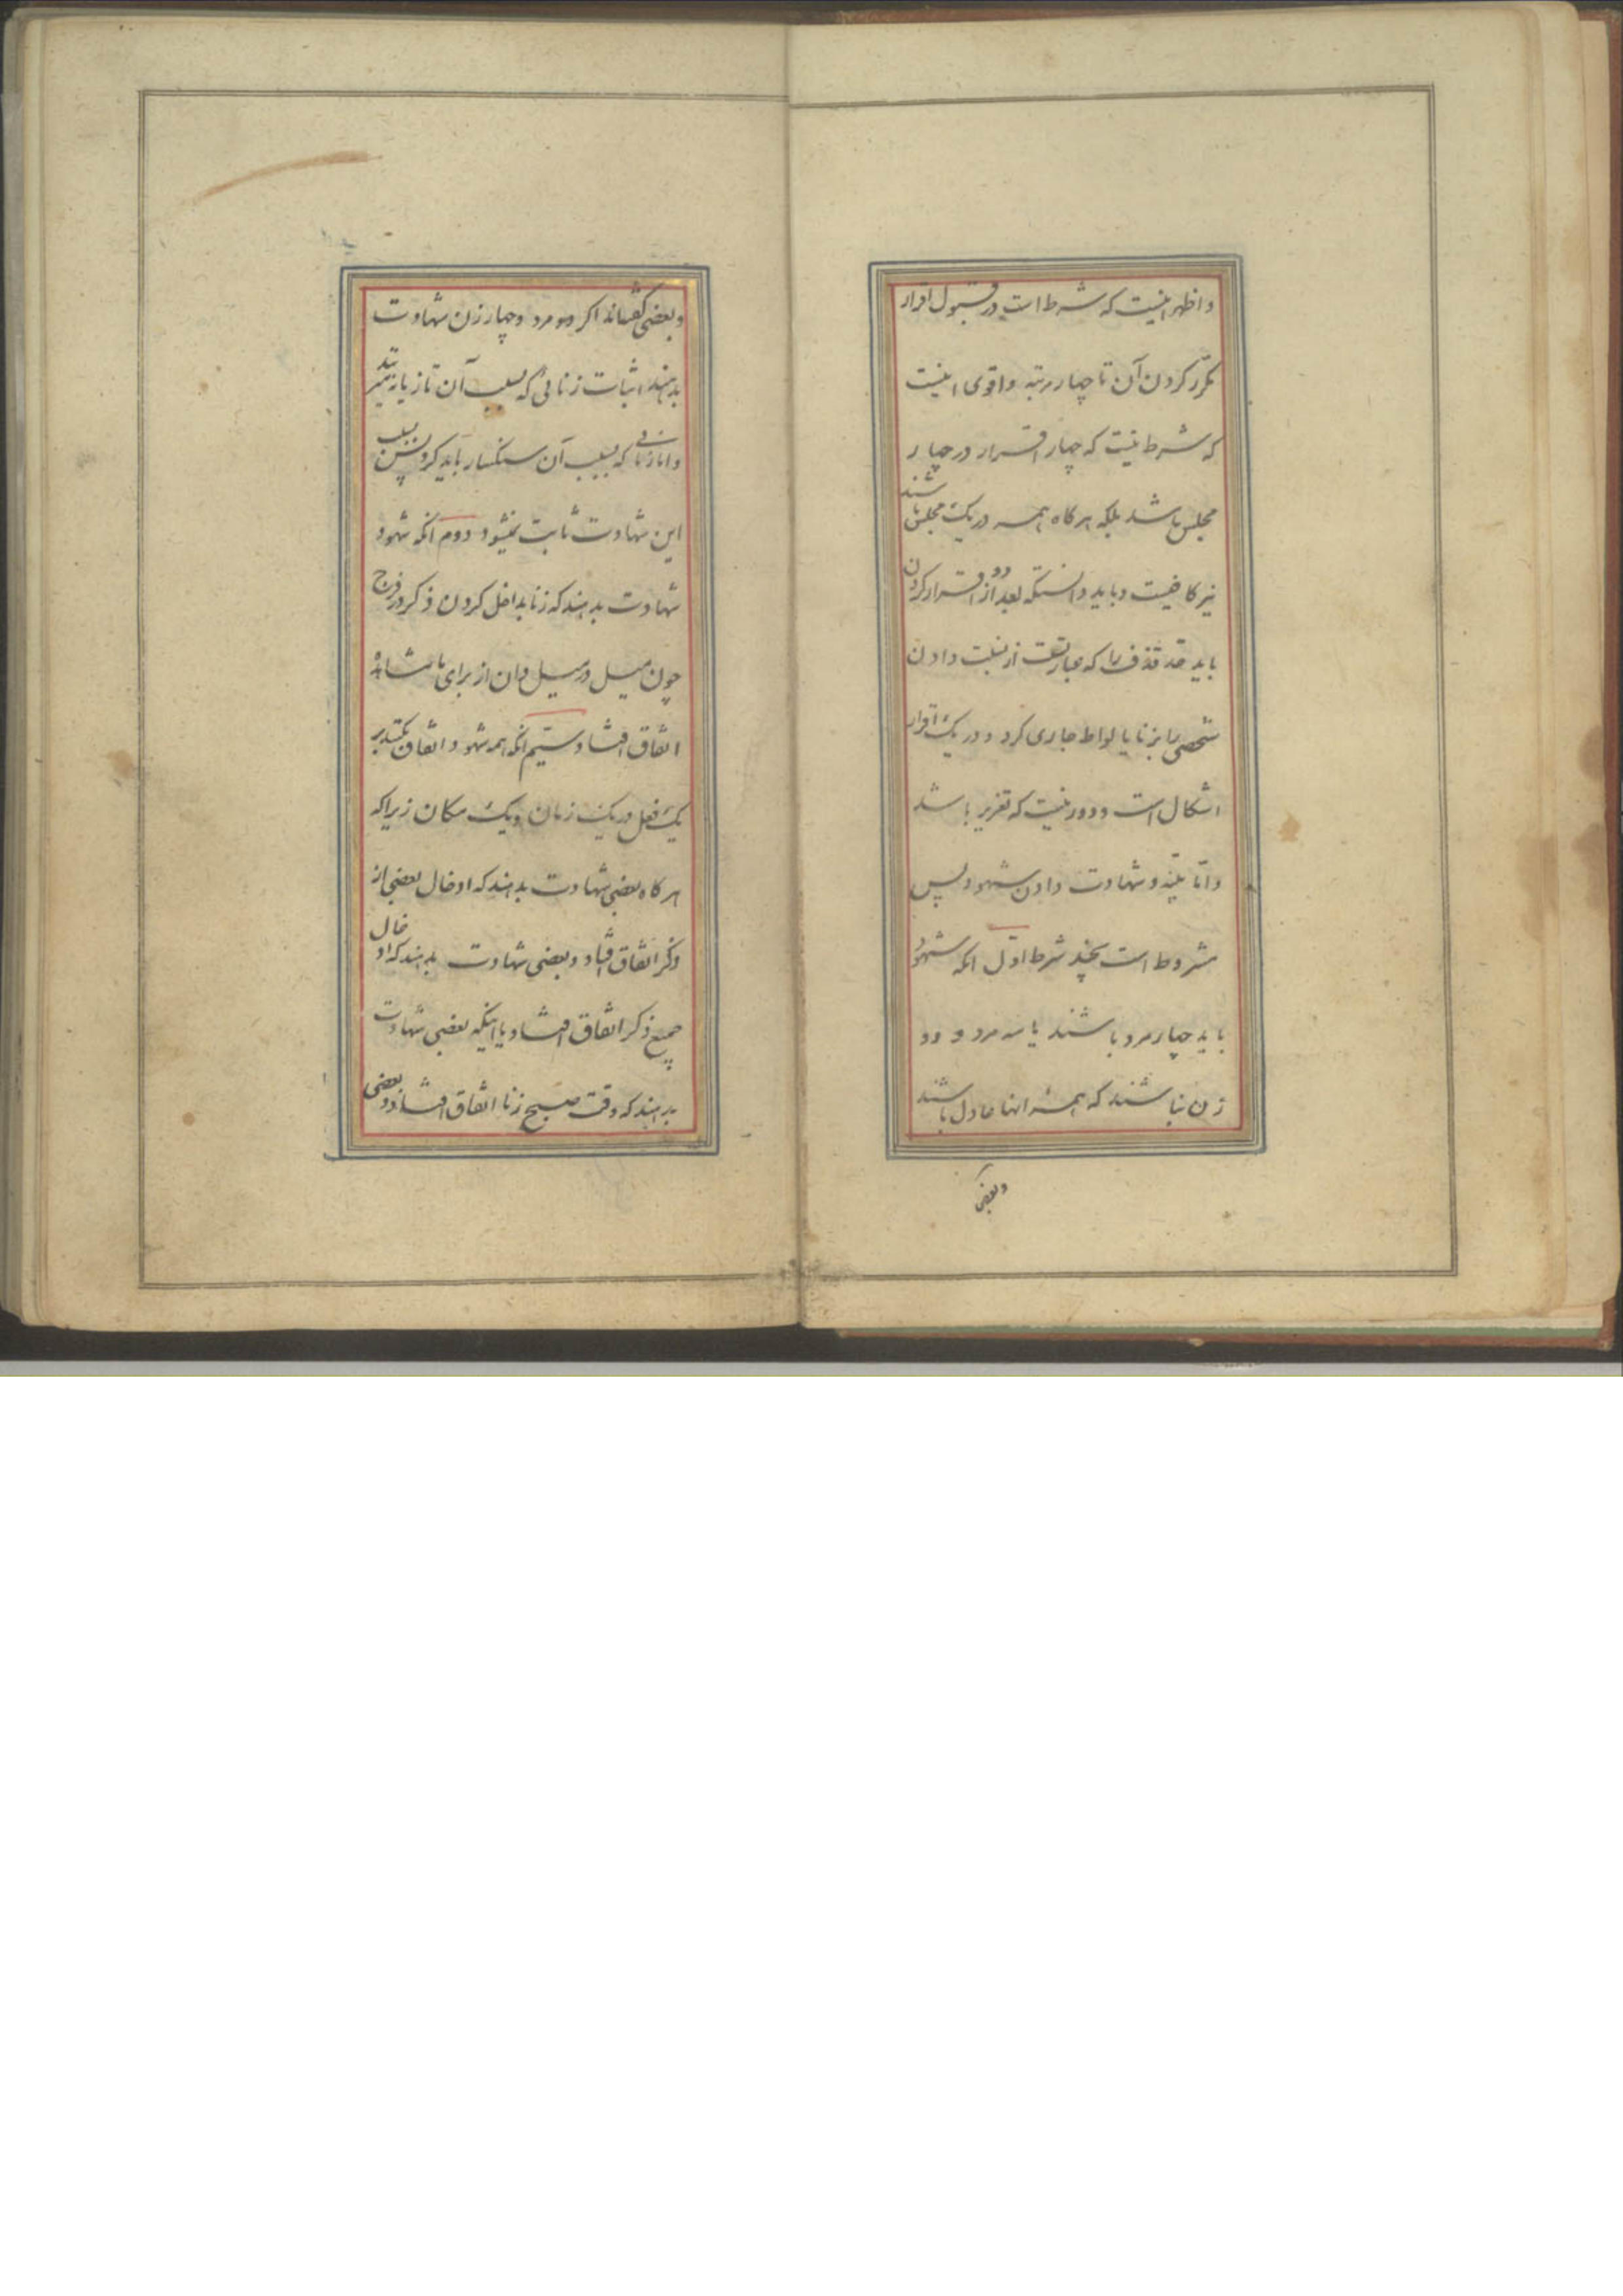 و اظهر اینست که شرط است در قبول اقرار
مکرر کردن آن تا چهار مرتبه و اقوی اینست
که شرط نیست که چهار اقرار در چهار
مجلس باشد بلکه هر کاه همه در یک مجلس باشند
نیز کافیست و باید دانست که بعد از دو اقرار کردن
باید حد قذف را که عبارتست از نسبت دادن
شخصی را بزنا یا لواط جاری کرد و در یک اقرار
اشکال است و دور نیست که تعزیر باشد
و اما بینه و شهادت دادن شهود پس
مشروط است بچند شرط اول آنکه شهود
باید چهار مرد باشند یا سه مرد و دو
زن باشند که همه انها عادل باشند
و بعضی
و بعضی کفته‌اند اکر دو مرد و چهار زن شهادت
بدهند اثبات زنائی که بسبب آن تازیانه
و اما زنائی که بسبب آن سنکسار باید کرد پس بسبب
این شهادت ثابت نمیشود دوم آنکه شهود
شهادت بدهند که زنا بداخل کردن ذکر در فرج
چون میل در میل دان از برای ما مشاهده
اتفاق افتاد سیم آنکه همه شهود اتفاق بکنند بر
یک فعل در یک زمان و یک مکان زیرا که
هر کاه بعضی شهادت بدهند که ادخال بعضی از
ذکر اتفاق افتاد و بعضی شهادت بدهند که ادخال
جمیع ذکر اتفاق افتاد یا اینکه بعضی شهادت
بدهند که وقت صبح زنا اتفاق افتاد و بعضی